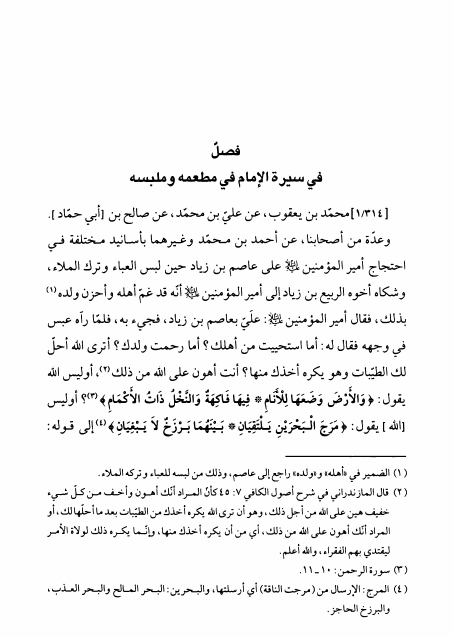 فصلٌ
في سيرة الإمام في مطعمه وملبسه
[١/٣١٤] محمّد بن يعقوب، عن عليّ بن محمّد، عن صالح بن [أبي حمّاد].
وعدّة من أصحابنا، عن أحمد بن محمّد وغيرهما بأسانيد مختلفة في
احتجاج أمير المؤمنين على عاصم بن زياد حين لبس العباء وترك الملاء،
وشكاه أخوه الربيع بن زياد إلى أمير المؤمنين أنّه قد غمّ أهله وأحزن ولده(١)
بذلك، فقال أمير المؤمنين: عليّ بعاصم بن زياد، فجيء به، فلمّا رآه عبس
في وجهه فقال له: أما استحييت من أهلك؟ أما رحمت ولدك؟ أترى الله أحلّ
لك الطيّبات وهو يكره أخذك منها؟ أنت أهون على الله من ذلك(٢)، أوليس الله
يقول: ﴿وَالْأَرْضَ وَضَعَهَا لِلْأَنَامِ * فِيهَا فَاكِهَةٌ وَالنَّخْلُ ذَاتُ الْأَكْمَامِ﴾(٣)؟ أوليس
[الله] يقول: ﴿مَرَجَ الْبَحْرَيْنِ يَلْتَقِيَانِ * بَيْنَهُمَا بَرْزَخٌ لَا يَبْغِيَانِ﴾(٤) إلى قوله:
(١) الضمير في «أهله» و«ولده» راجع إلى عاصم، وذلك من لبسه للعباء وتركه الملاء.
(٢) قال المازندراني في شرح أصول الكافي ٧: ٤٥ كأنّ المراد أنّك أهون وأخف من كلّ شيء
خفيف هين على الله من أجل ذلك، وهو أن ترى الله يكره أخذك من الطيّبات بعد ما أحلّها لك، أو
المراد أنّك أهون على الله من ذلك، أي من أن يكره أخذك منها، وإنّما يكره ذلك لولاة الأمر
ليقتدي بهم الفقراء، والله أعلم.
(٣) سورة الرحمن: ١٠ ـ ١١.
(٤) المرج: الإرسال من (مرجت الناقة) أي أرسلتها، والبحرين: البحر المالح والبحر العذب،
والبرزخ الحاجز.